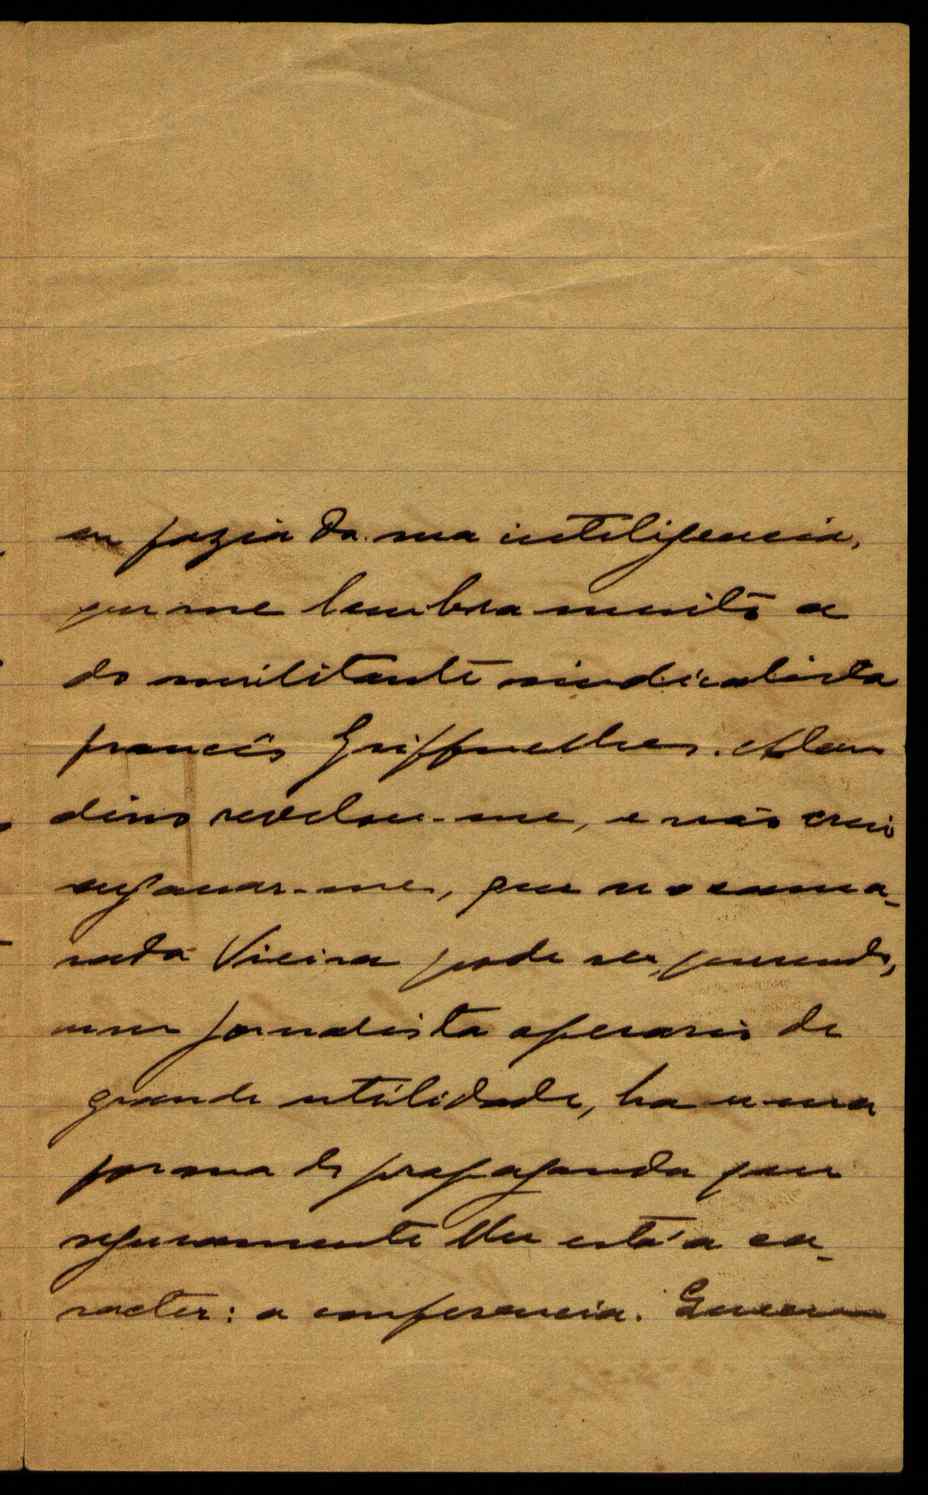 eu fazia da sua inteligencia,
que me lembra muito a
do militante sindicalista
francês Griffuelhes.
dino revelou-me, e não creio
enganar-me, que se o cama-
rada Vieira pode ser, querendo,
um jornalista operario de
grande utilidade, ha uma
forma de propaganda que
seguramente lhe está a ca-
racter: a conferencia.